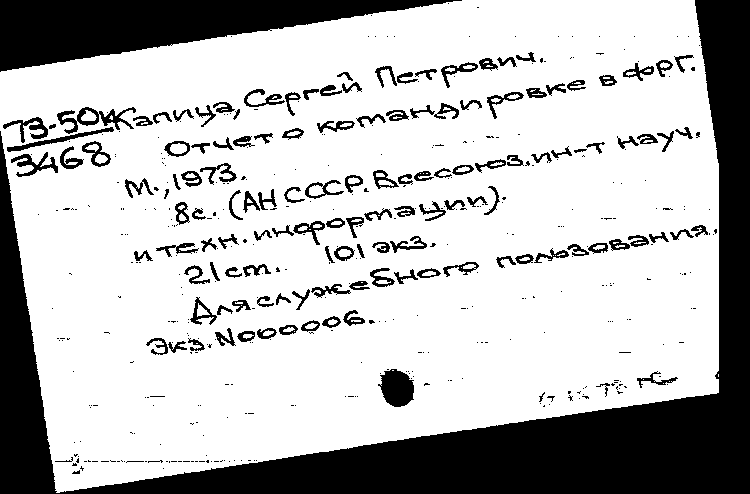 73-50к Капица, Сергей Петрович.
3468 Отчет о командировке в ФРГ.
М., 1973.
8с. (АН СССР. Всесоюз. ин-т науч.
и техн. информации).
21 cm. 101 экз.
Для служебного пользования.
Экз. N000006.